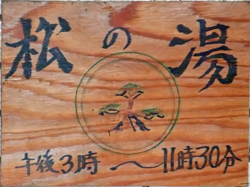 松の湯
午後3時～11時30分